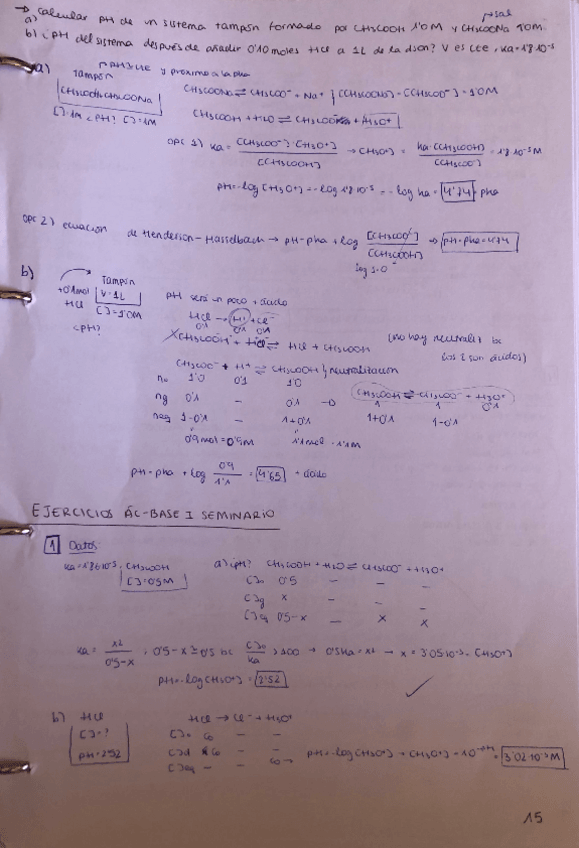 → calcular pH de un sistema tampón formado por CH3COOH 1'0M y CH3COONa 1'0M.
sal
b) ¿pH del sistema después de añadir 0'10 moles HCl a 1L de la dison? V es cte, Ka=1'8·10⁻⁵
a)
pH≈cte y próximo a la pKa
Tampón
CH3COOH/CH3COONa
[ ]=1M ¿pH? [ ]=1M
CH3COONa ⇌ CH3COO⁻ + Na⁺ [CH3COONa] = [CH3COO⁻] = 1'0M
CH3COOH + H2O ⇌ CH3COO⁻ + H3O⁺
OPC 1) Ka = [CH3COO⁻]·[H3O⁺] / [CH3COOH] → [H3O⁺] = Ka·[CH3COOH] / [CH3COO⁻] = 1'8·10⁻⁵M
pH = -log[H3O⁺] = -log 1'8·10⁻⁵ = -log Ka = 4'74 = pKa
OPC 2) ecuación de Henderson-Hasselbach → pH = pKa + log [CH3COO⁻] / [CH3COOH] → pH = pKa = 4'74
log 1=0
b)
+0'1mol HCl
Tampón
V=1L
[ ]=1'0M
¿pH?
pH será un poco + ácido
HCl → H⁺ + Cl⁻
0'1 0'1 0'1
CH3COOH + HCl ⇌ HCl + CH3COOH (no hay neutraliz bc los 2 son ácidos)
CH3COO⁻ + H⁺ ⇌ CH3COOH } neutralización
n0 1'0 0'1 1'0
CH3COOH ⇌ CH3COO⁻ + H3O⁺
ng 0'1 - 0'1
1 1 0'1
neq 1-0'1 - 1+0'1
1+0'1 1-0'1
0'9mol=0'9M 1'1mol=1'1M
pH = pKa + log 0'9 / 1'1 = 4'65 + ácido
EJERCICIOS ÁC-BASE I SEMINARIO
1 Datos
Ka=1'86·10⁻⁵, CH3COOH
[ ]=0'5M
a) ¿pH? CH3COOH + H2O ⇌ CH3COO⁻ + H3O⁺
[ ]0 0'5 - - -
[ ]g x - - -
[ ]eq 0'5-x - x x
Ka = x² / 0'5-x ; 0'5-x ≅ 0'5 bc [ ]0 / Ka > 100 → 0'5Ka = x² → x = 3'05·10⁻³ = [H3O⁺]
pH = -log[H3O⁺] = 2'52
b) HCl
[ ]=?
pH=2'52
HCl → Cl⁻ + H3O⁺
[ ]0 C0 - -
[ ]d C0 - -
[ ]eq - - C0 → pH = -log[H3O⁺] → [H3O⁺] = 10⁻ᵖᴴ = 3'02·10⁻³M
15